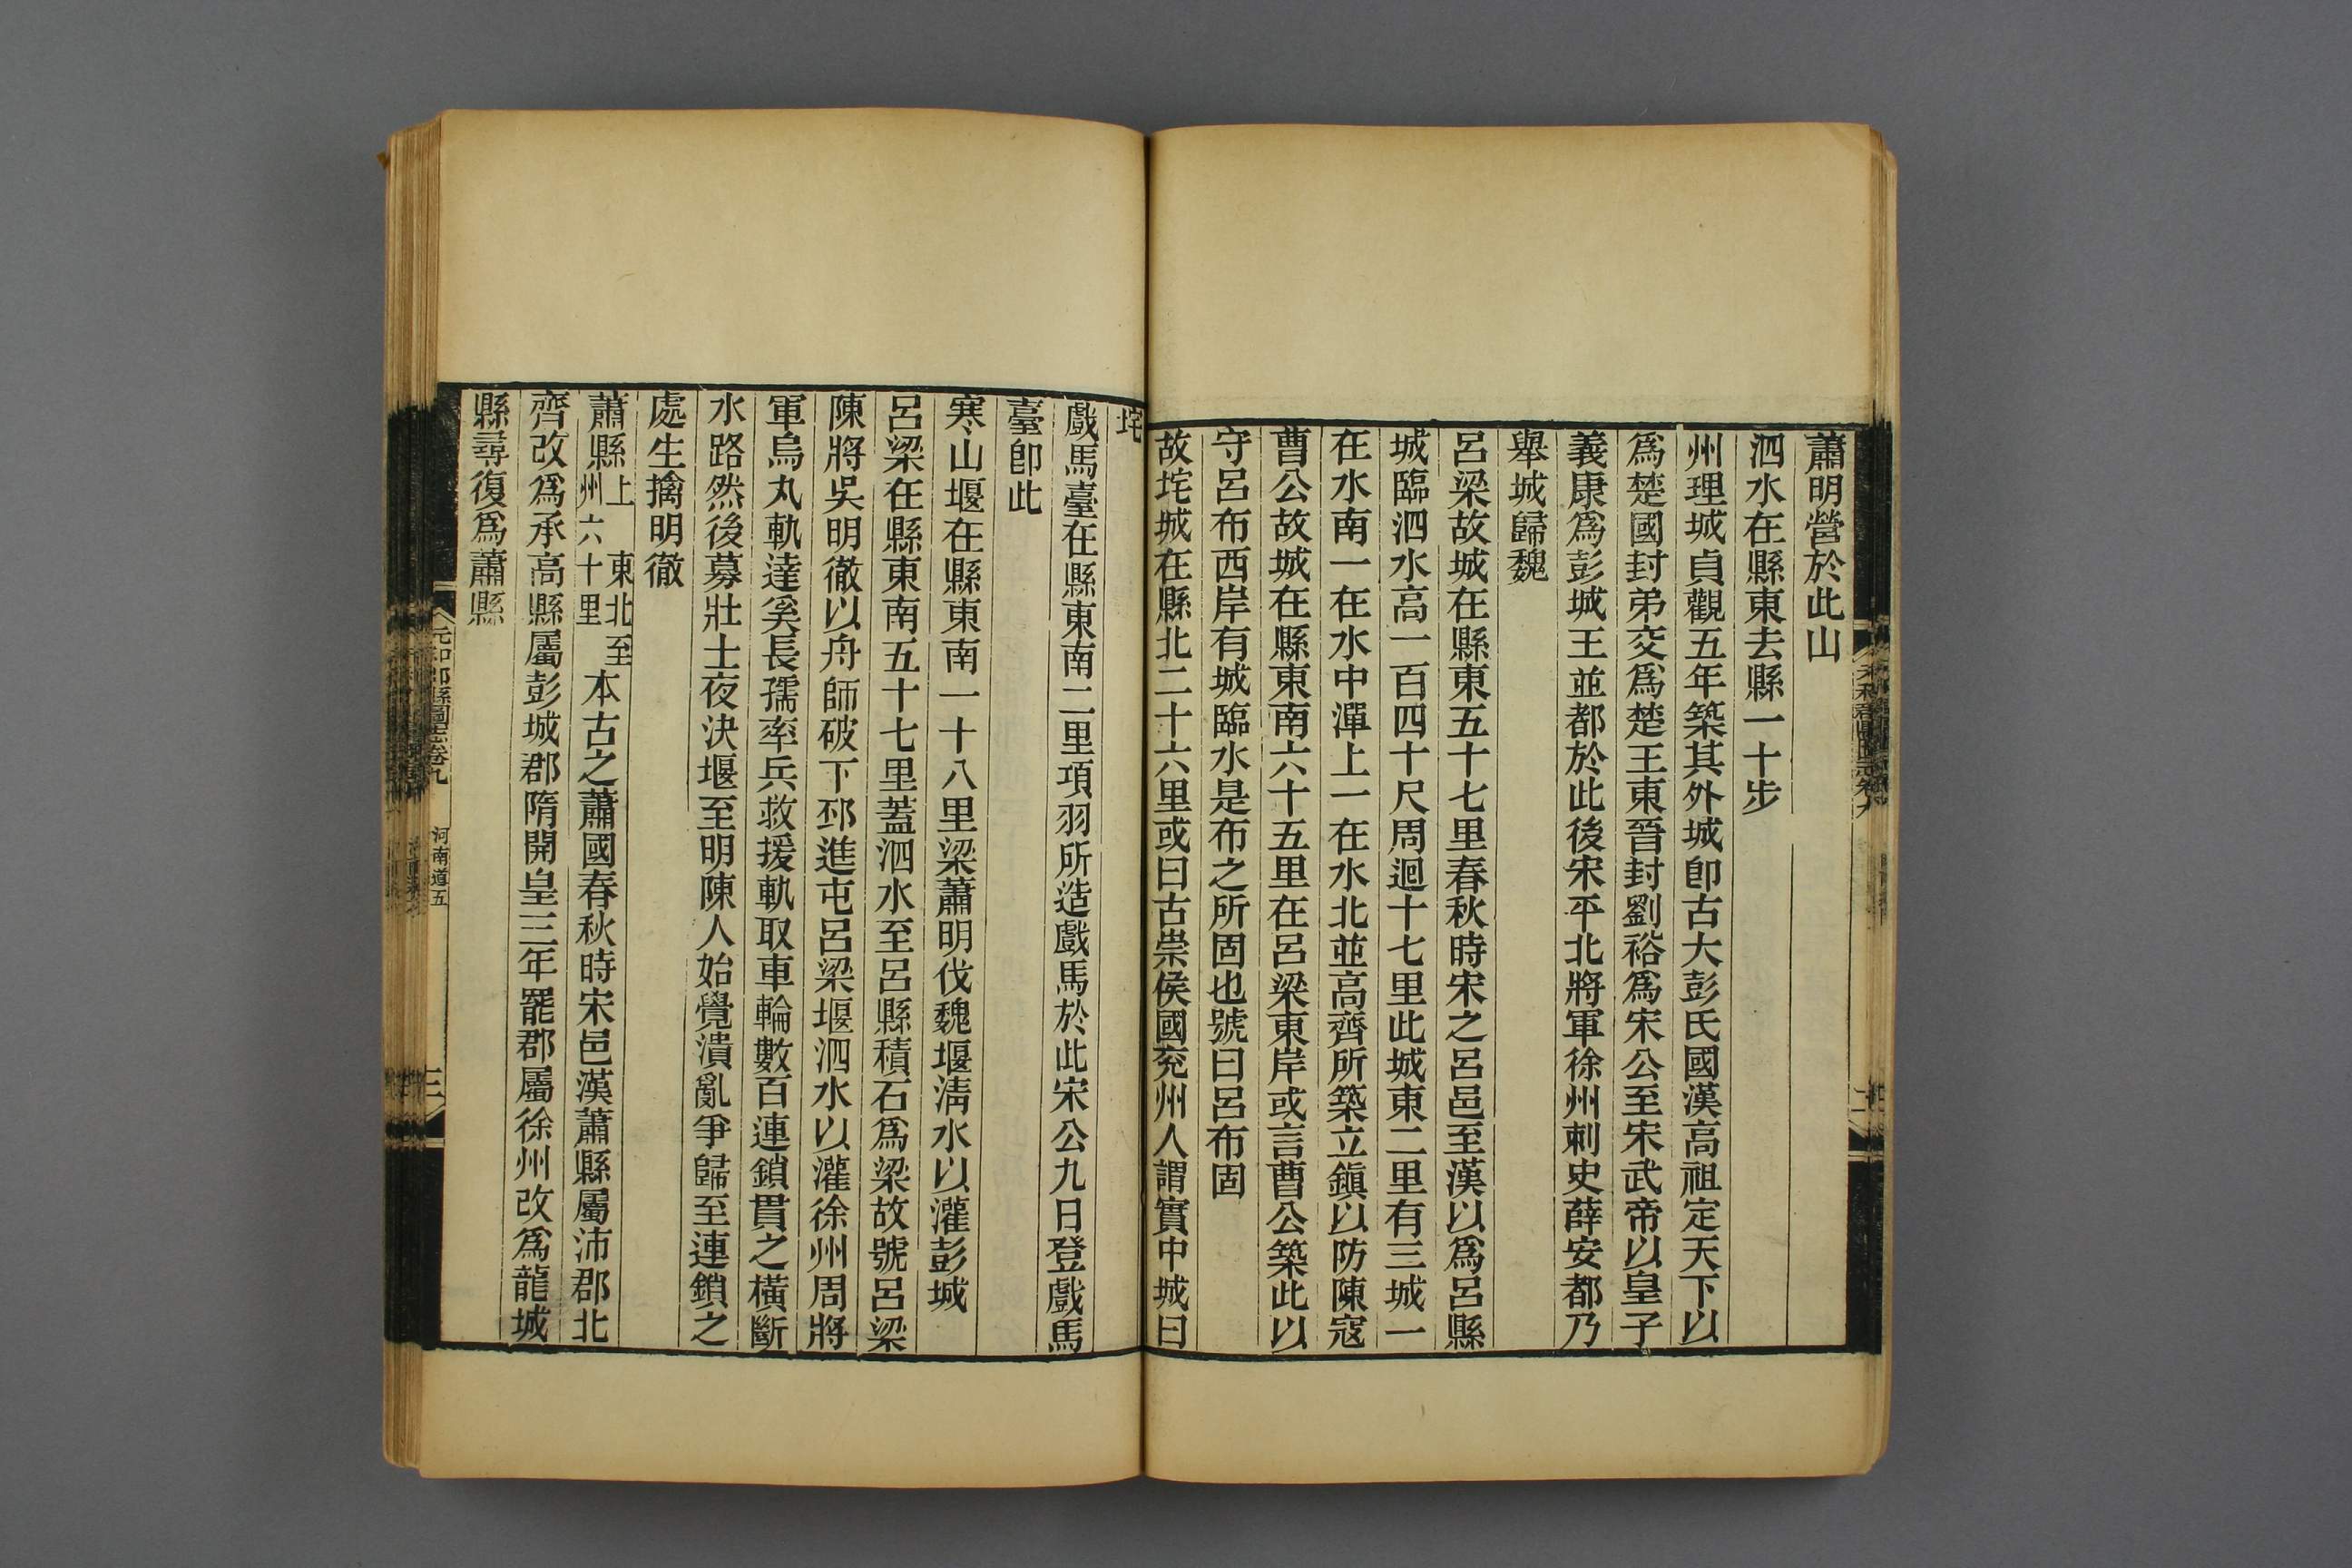 蕭明營於此山
泗水在縣東去縣一十步
州理城貞觀五年築其外城卽古大彭氏國漢高祖定天下以
爲楚國封弟交爲楚王東晉封劉裕爲宋公至宋武帝以皇子
義康爲彭城王並都於此後宋平北將軍徐州刺史薛安都乃
舉城歸魏
呂梁故城在縣東五十七里春秋時宋之呂邑至漢以爲呂縣
城臨泗水高一百四十尺周迴十七里此城東二里有三城一
在水南一在水中潬上一在水北並高齊所築立鎭以防陳寇
曹公故城在縣東南六十五里在呂梁東岸或言曹公築此以
守呂布西岸有城臨水是布之所固也號曰呂布固
故垞城在縣北二十六里或曰古崇侯國兖州人謂實中城曰
垞
戲馬臺在縣東南二里項羽所造戲馬於此宋公九日登戲馬
臺卽此
寒山堰在縣東南一十八里梁蕭明伐魏堰淸水以灌彭城
呂梁在縣東南五十七里蓋泗水至呂縣積石爲梁故號呂梁
陳將吳明徹以舟師破下邳進屯呂梁堰泗水以灌徐州周將
軍烏丸軌達奚長孺率兵救援軌取車輪數百連鎖貫之橫斷
水路然後募壯士夜決堰至明陳人始覺潰亂爭歸至連鎖之
處生擒明徹
蕭縣上 東北至州六十里 本古之蕭國春秋時宋邑漢蕭縣屬沛郡北
齊改爲承高縣屬彭城郡隋開皇三年罷郡屬徐州改爲龍城
縣尋復爲蕭縣
元和郡縣圖志卷九 河南道五 三